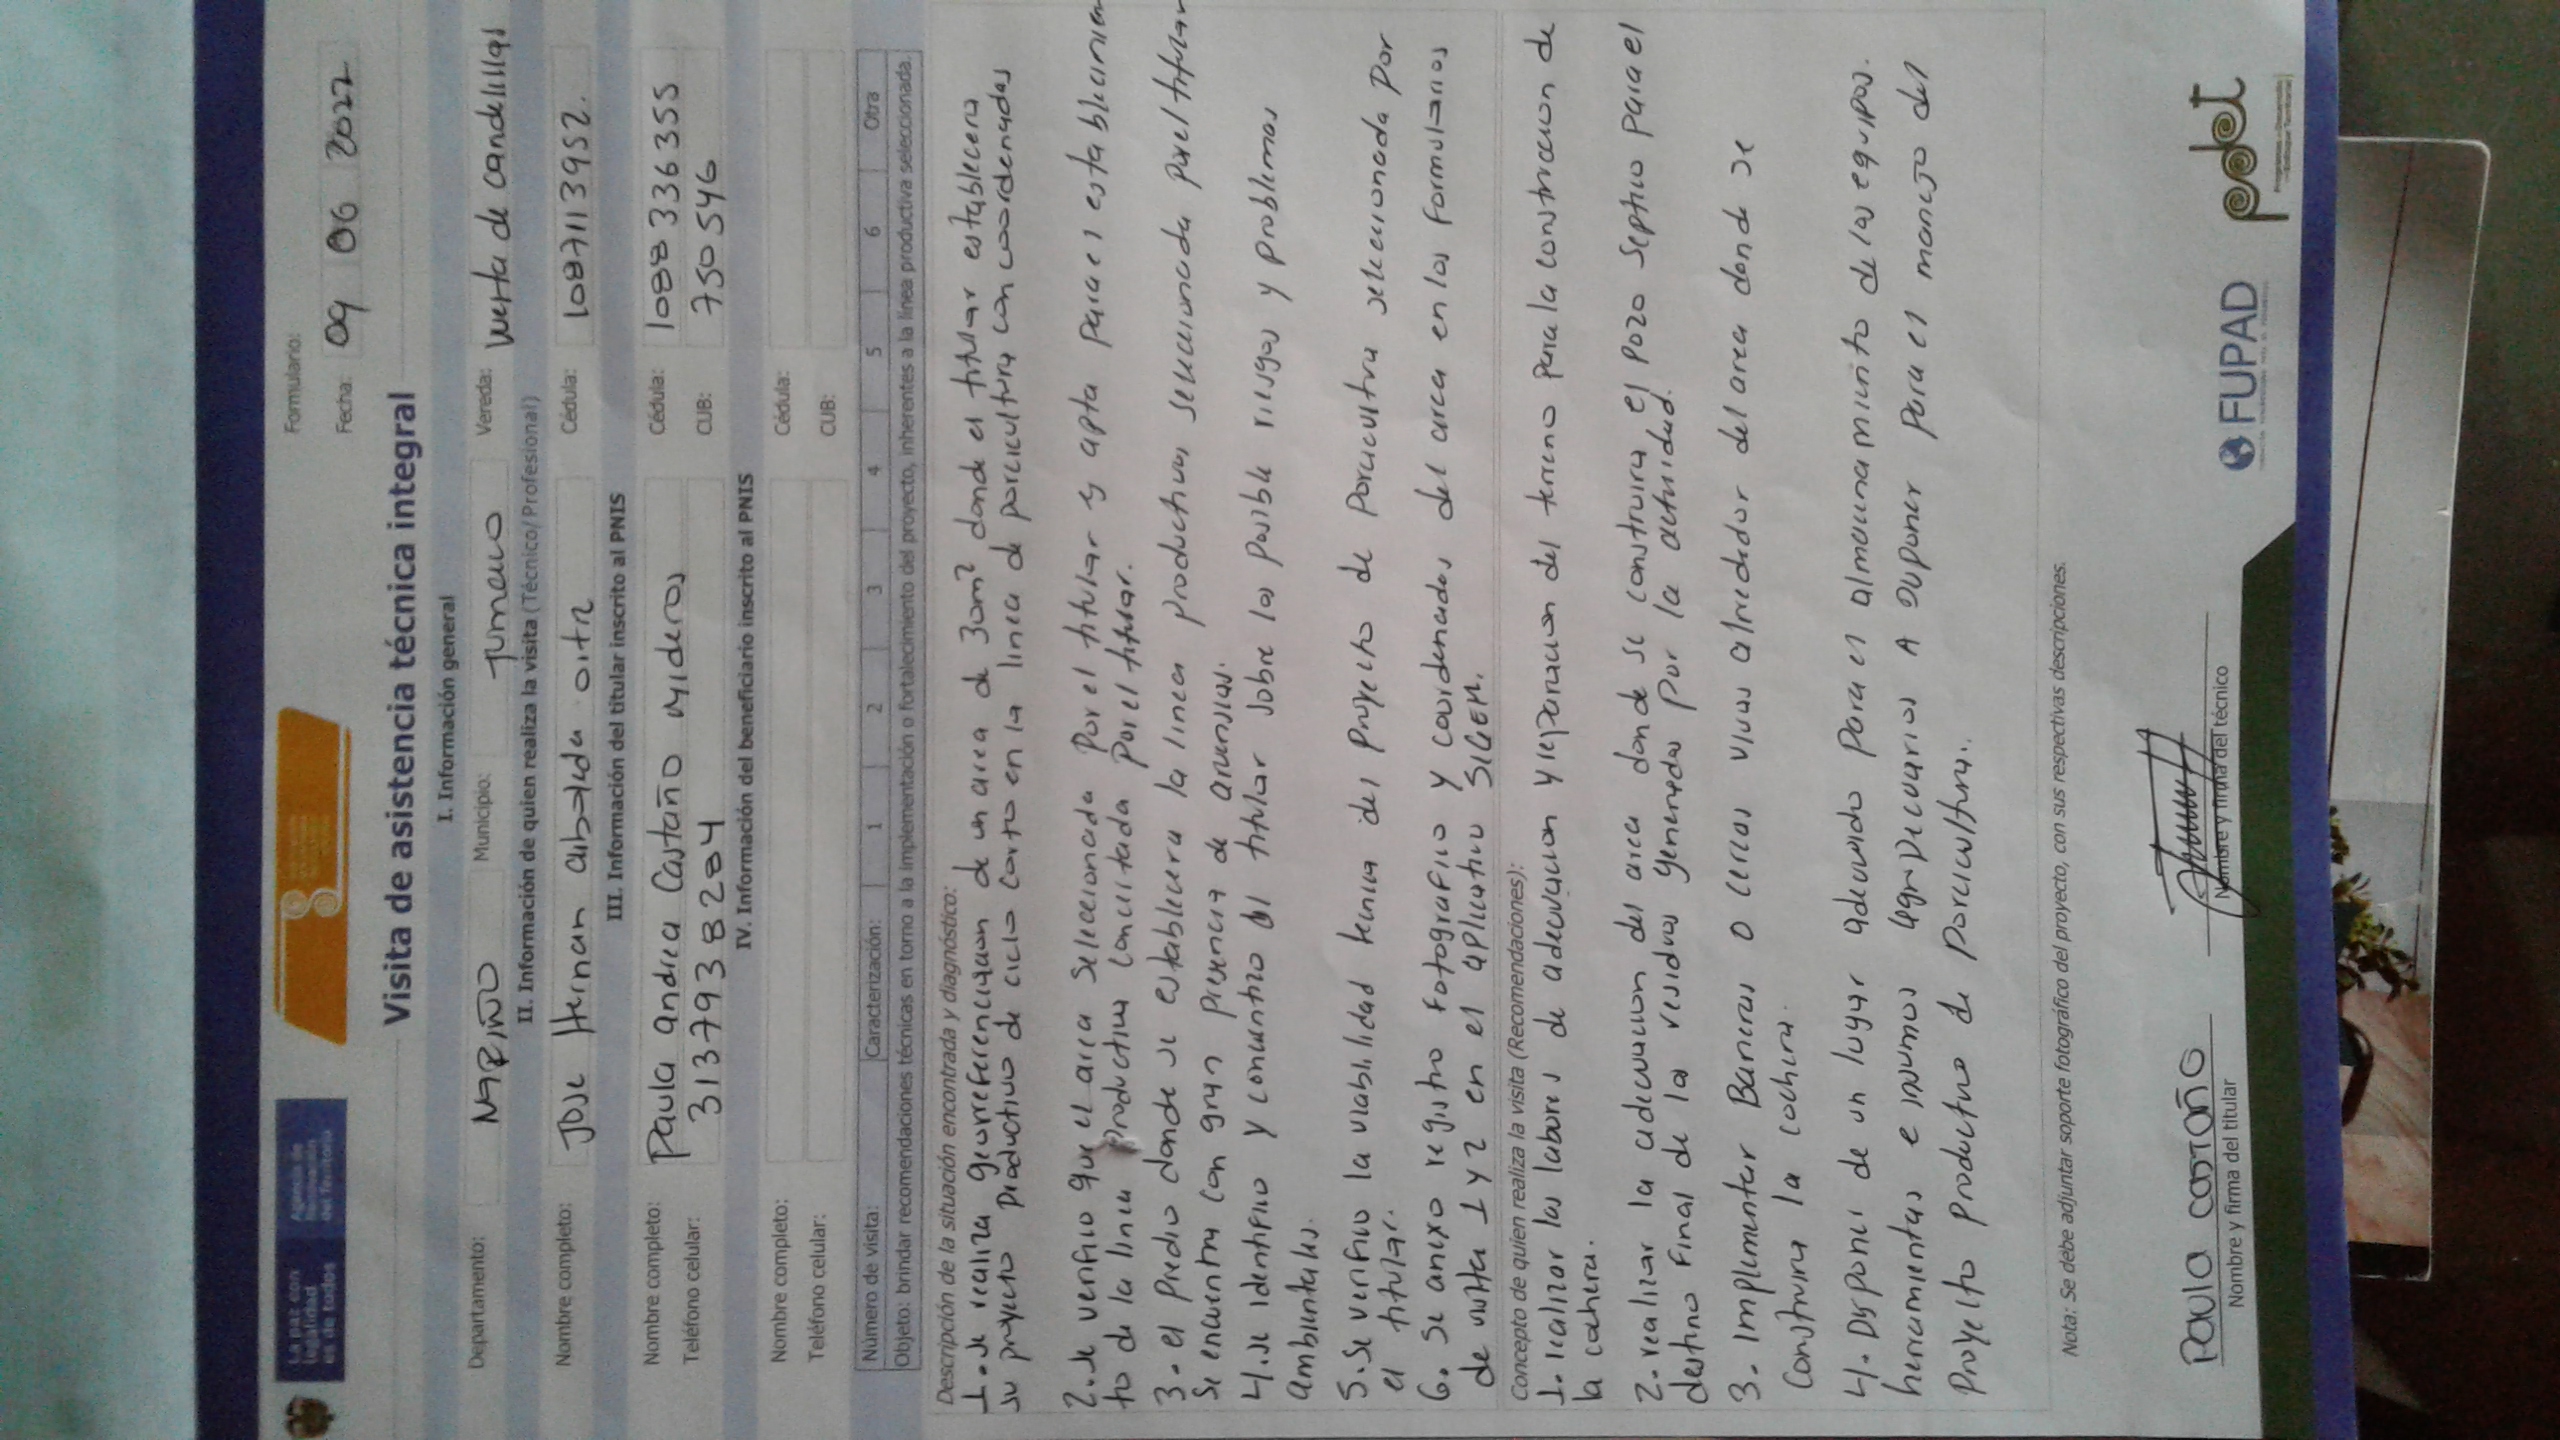 La paz con
legalidad
es de todos
Agencia de
Renovación
del Territorio
Formulario:
Fecha: 09 06 2022
Visita de asistencia técnica integral
I. Información general
Departamento: NARIÑO Municipio: Tumaco Vereda: vuelta de candelillas
II. Información de quien realiza la visita (Técnico/ Profesional)
Nombre completo: Jose Hernan Cédula: 1087113952.
III. Información del titular inscrito al PNIS
Nombre completo: Paula andrea Castaño mideros Cédula: 1088336355
Teléfono celular: 3137938284 CUB: 750546
IV. Información del beneficiario inscrito al PNIS
Nombre completo: Cédula:
Teléfono celular: CUB:
Número de visita: Caracterización: 1 2 3 4 5 6 Otra
Objeto: brindar recomendaciones técnicas en torno a la implementación o fortalecimiento del proyecto, inherentes a la línea productiva seleccionada.
Descripción de la situación encontrada y diagnóstico:
1. se realiza georreferenciacion de un area de 30m² donde el titular establecera
su proyecto productivo de ciclo corto en la linea de porcicultura con coordenadas
2. se verifico que el area seleccionada por el titular es apta para el establecimien
to de la linea productiva concertada por el titular.
3. el predio donde se establecera la linea productiva seleccionada por el titular
se encuentra con gran presencia de
4. se identifico y concientizo al titular sobre los posible riesgos y problemas
ambientales.
5. se verifico la viabilidad tecnica del proyecto de porcicultura seleccionada por
el titular.
6. se anexo registro fotografico y coordenadas del area en los formularios
de visita 1 y 2 en el aplicativo SIGEM.
Concepto de quien realiza la visita (Recomendaciones):
1. realizar las labores de adecuacion y reparacion del terreno para la construccion de
la cochera.
2. realizar la adecuacion del area donde se construira el pozo septico para el
destino final de los residuos generados por la actividad.
3. implementar Barreras o cercas vivas alrededor del area donde se
construira la cochera.
4. Disponer de un lugar adecuado para el almacenamiento de los equipos.
herramientas e insumos agropecuarios A Disponer para el manejo del
proyecto productivo de porcicultura..
Nota: Se debe adjuntar soporte fotográfico del proyecto, con sus respectivas descripciones.
Paula castaño
Nombre y firma del titular
Nombre y firma del técnico
FUPAD
pdet